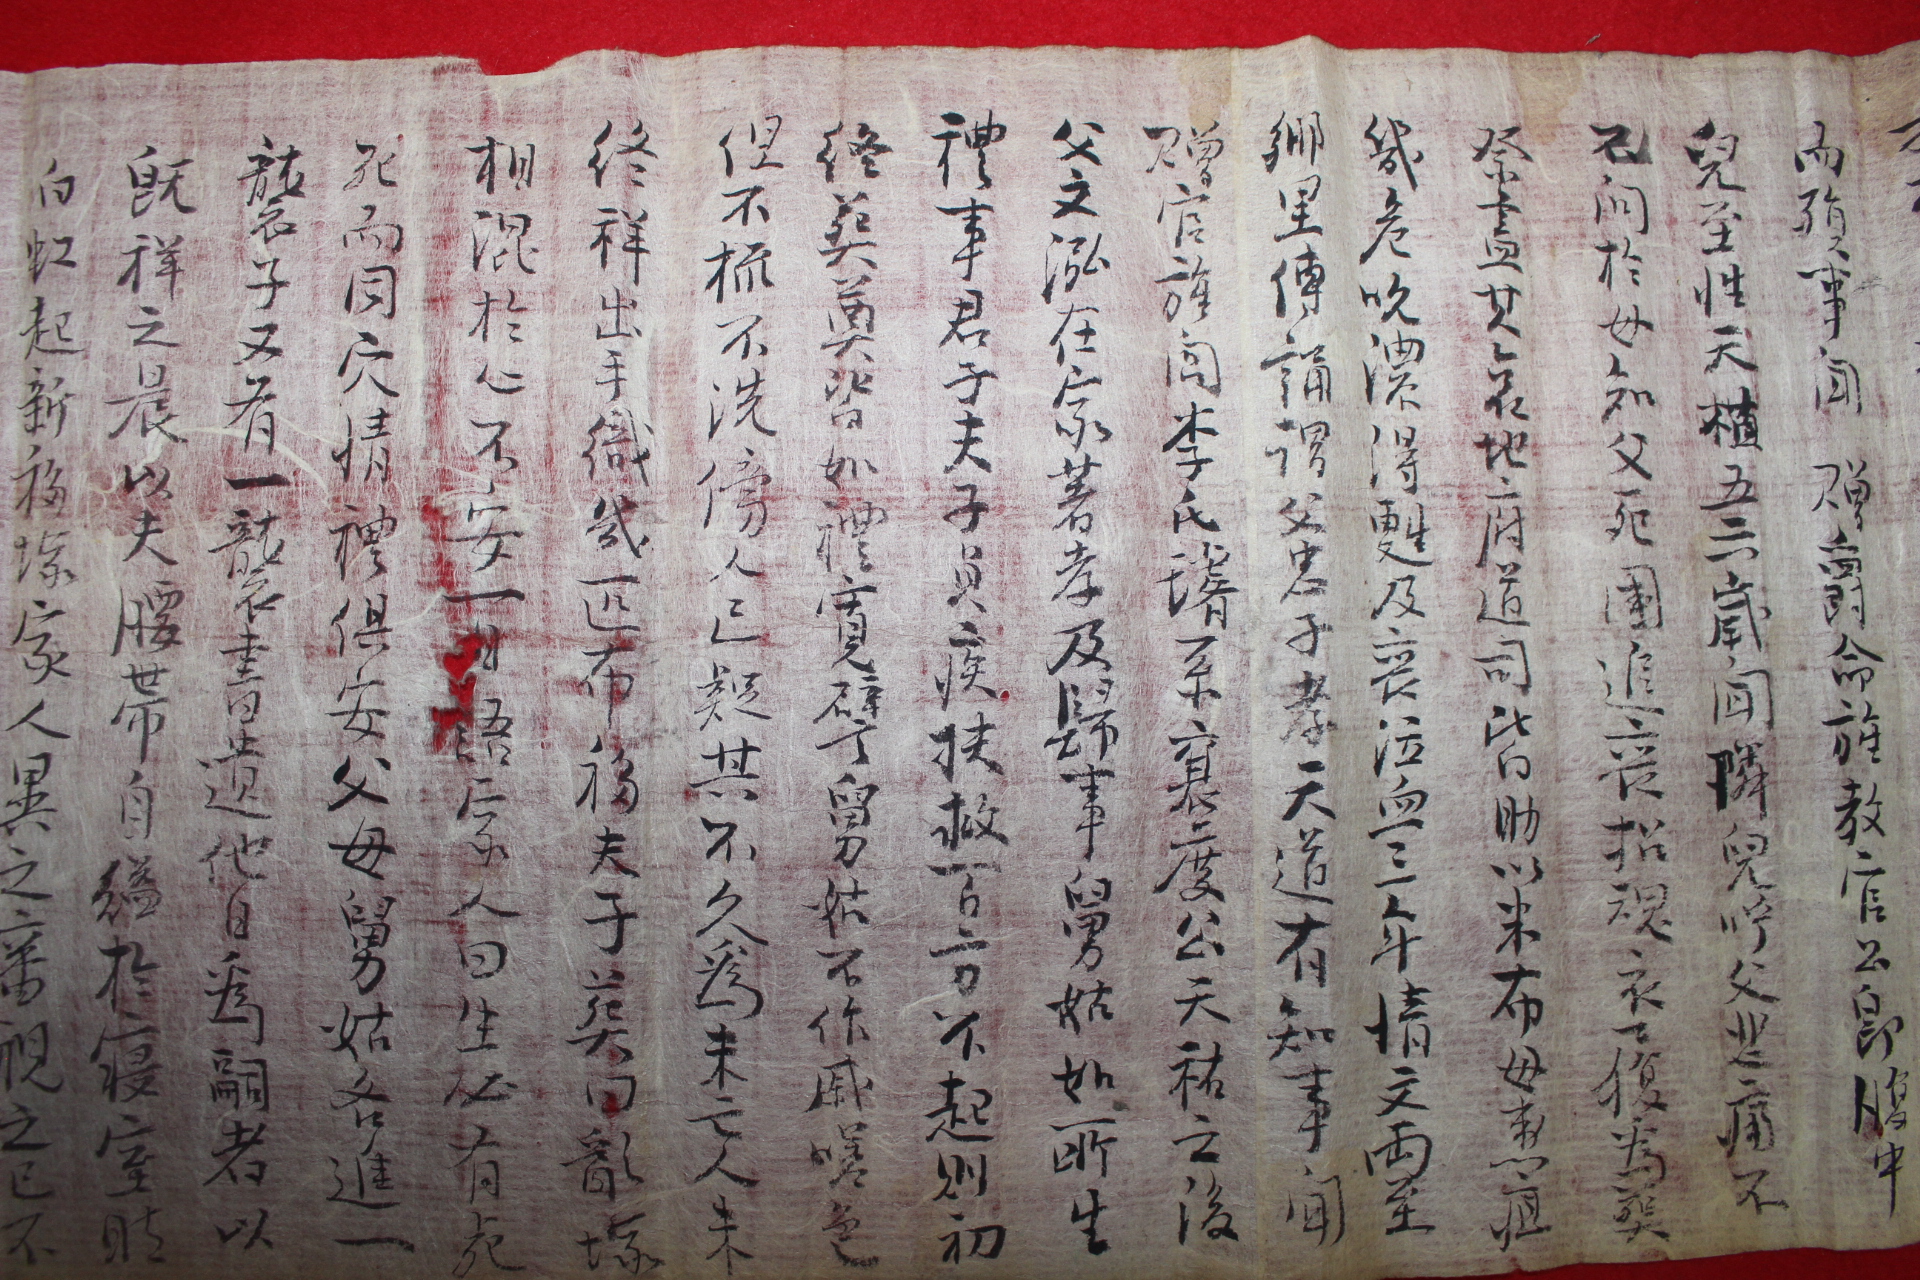 而殞事聞 贈爵命旌教官公郎腹中
兒至性天植五六歲聞隣兒呼父悲痛不
已問於母知父死團追喪招魂衣下復為葬
祭盡其哀地府道司皆助以米布母患疽
幾危吮濃得甦及喪泣血三年情文兩至
鄉里傳誦謂父忠子孝天道有知事聞
贈官旌閭李氏璿系襄度公天祐之後
父文泓在家著孝及歸事舅姑如所生
禮事君子夫子負疾扶救百方不起則初
終葬奠皆如禮寬譬舅姑不作戚嗟色
但不梳不洗傍人已疑其不久為未亡人未
終祥出手織幾匹布移夫子葬曰亂塚
相混於心不安一日語家人曰生必有死
死而同穴情禮俱安父母舅姑各進一
襲衣子又有一襲衣書遺他日為嗣者以
既祥之晨以夫腰帶自縊於寢室時
白虹起新移塚家人異之審視之已不